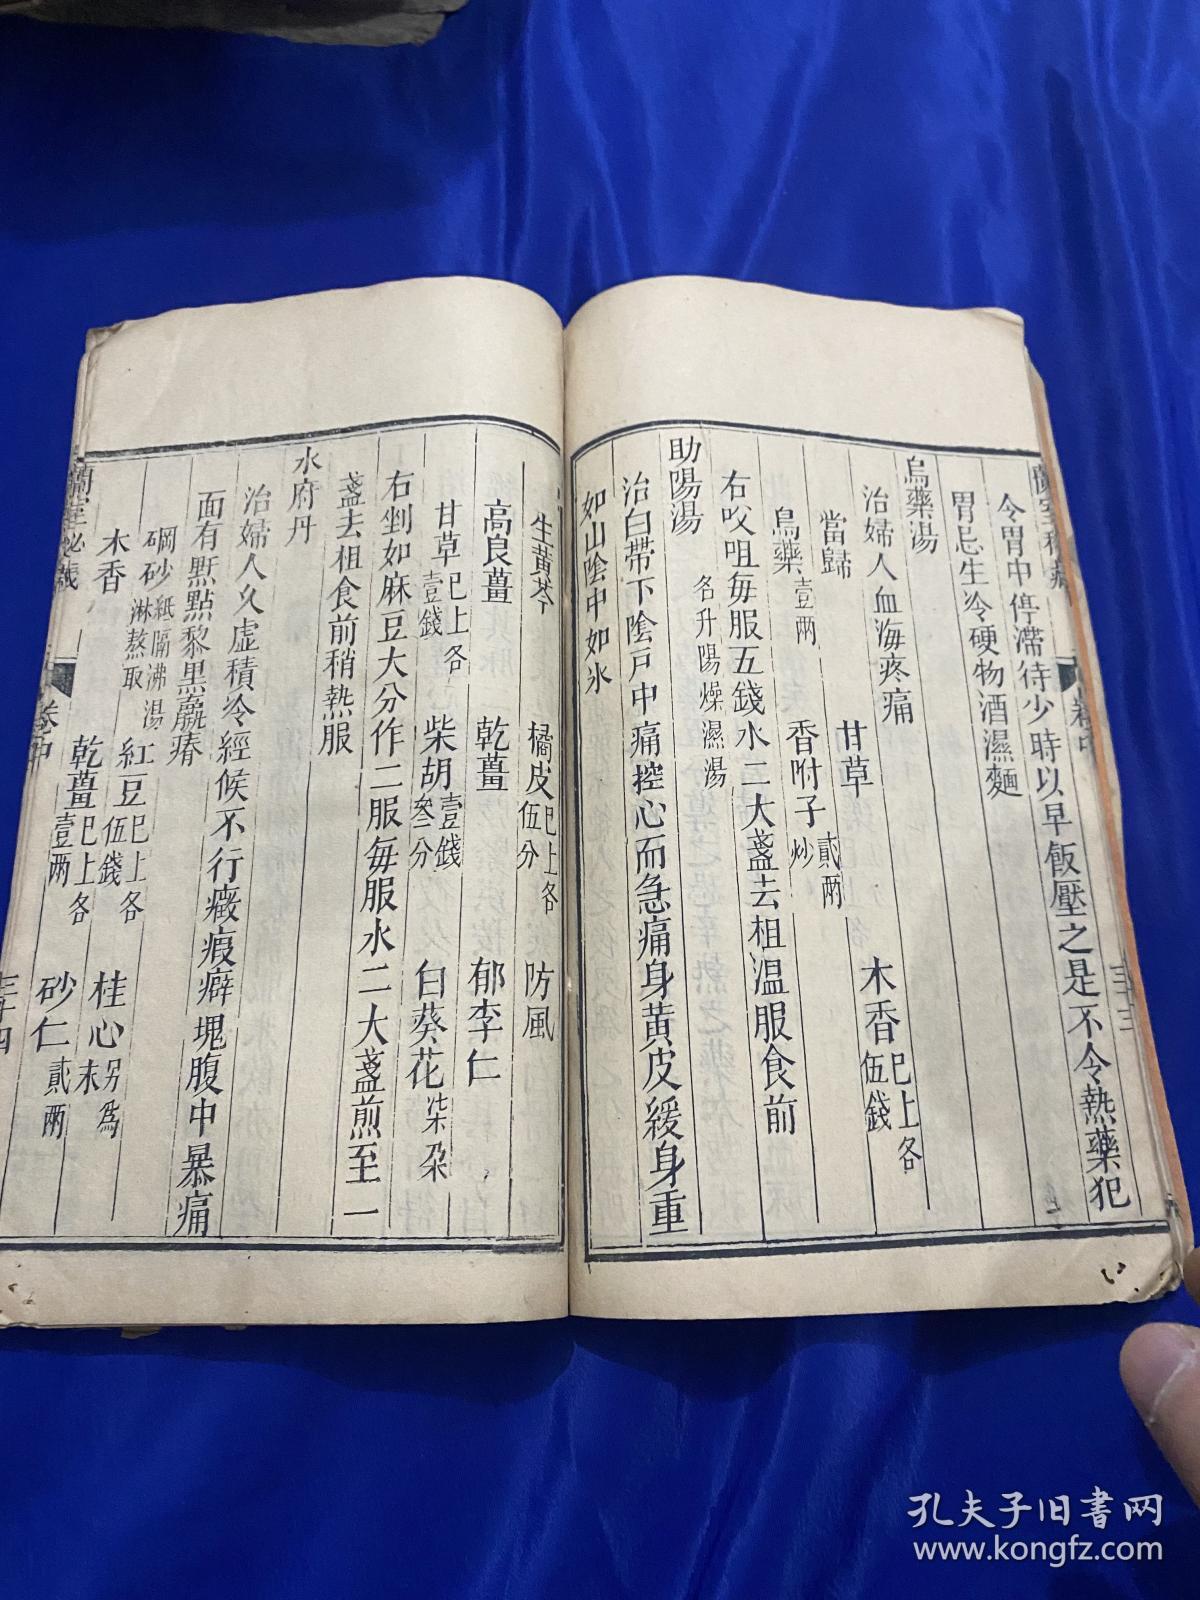 蘭室秘藏
卷中
三十三
令胃中停滯待少時以早飯壓之是不令熱藥犯
胃忌生冷硬物酒濕麵
烏藥湯
治婦人血海疼痛
當歸 甘草 木香已上各伍錢
烏藥壹兩 香附子貳兩炒
右㕮咀每服五錢水二大盞去柤溫服食前
助陽湯 名升陽燥濕湯
治白帶下陰戶中痛控心而急痛身黃皮緩身重
如山陰中如氷
生黃芩 橘皮已上各伍分 防風
高良薑 乾薑 郁李仁
甘草已上各壹錢 柴胡壹錢叁分 白葵花柒朶
右剉如麻豆大分作二服每服水二大盞煎至一
盞去柤食前稍熱服
水府丹
治婦人久虛積冷經候不行癥瘕癖塊腹中暴痛
面有䵟點黎黑羸瘠
硇砂紙隔沸湯淋熬取 紅豆已上各伍錢 桂心另爲末
木香 乾薑已上各壹兩 砂仁貳兩
蘭室秘藏
卷中
三十四
孔夫子旧书网
www.kongfz.com